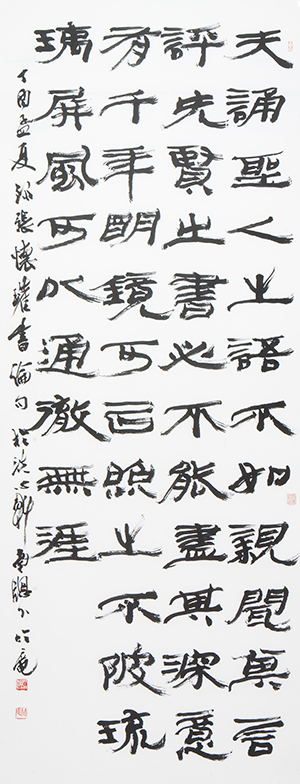 夫誦聖人之語不如親聞其言
評先賢之書必不能盡其深意
有千年明鏡可以照之不陂琉
璃屏風可以通徹無涯
丁酉孟夏錄張懷瓘書論句於